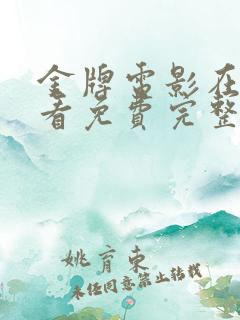 金牌电影在
看免费完整
姚育东
未经同意禁止转载